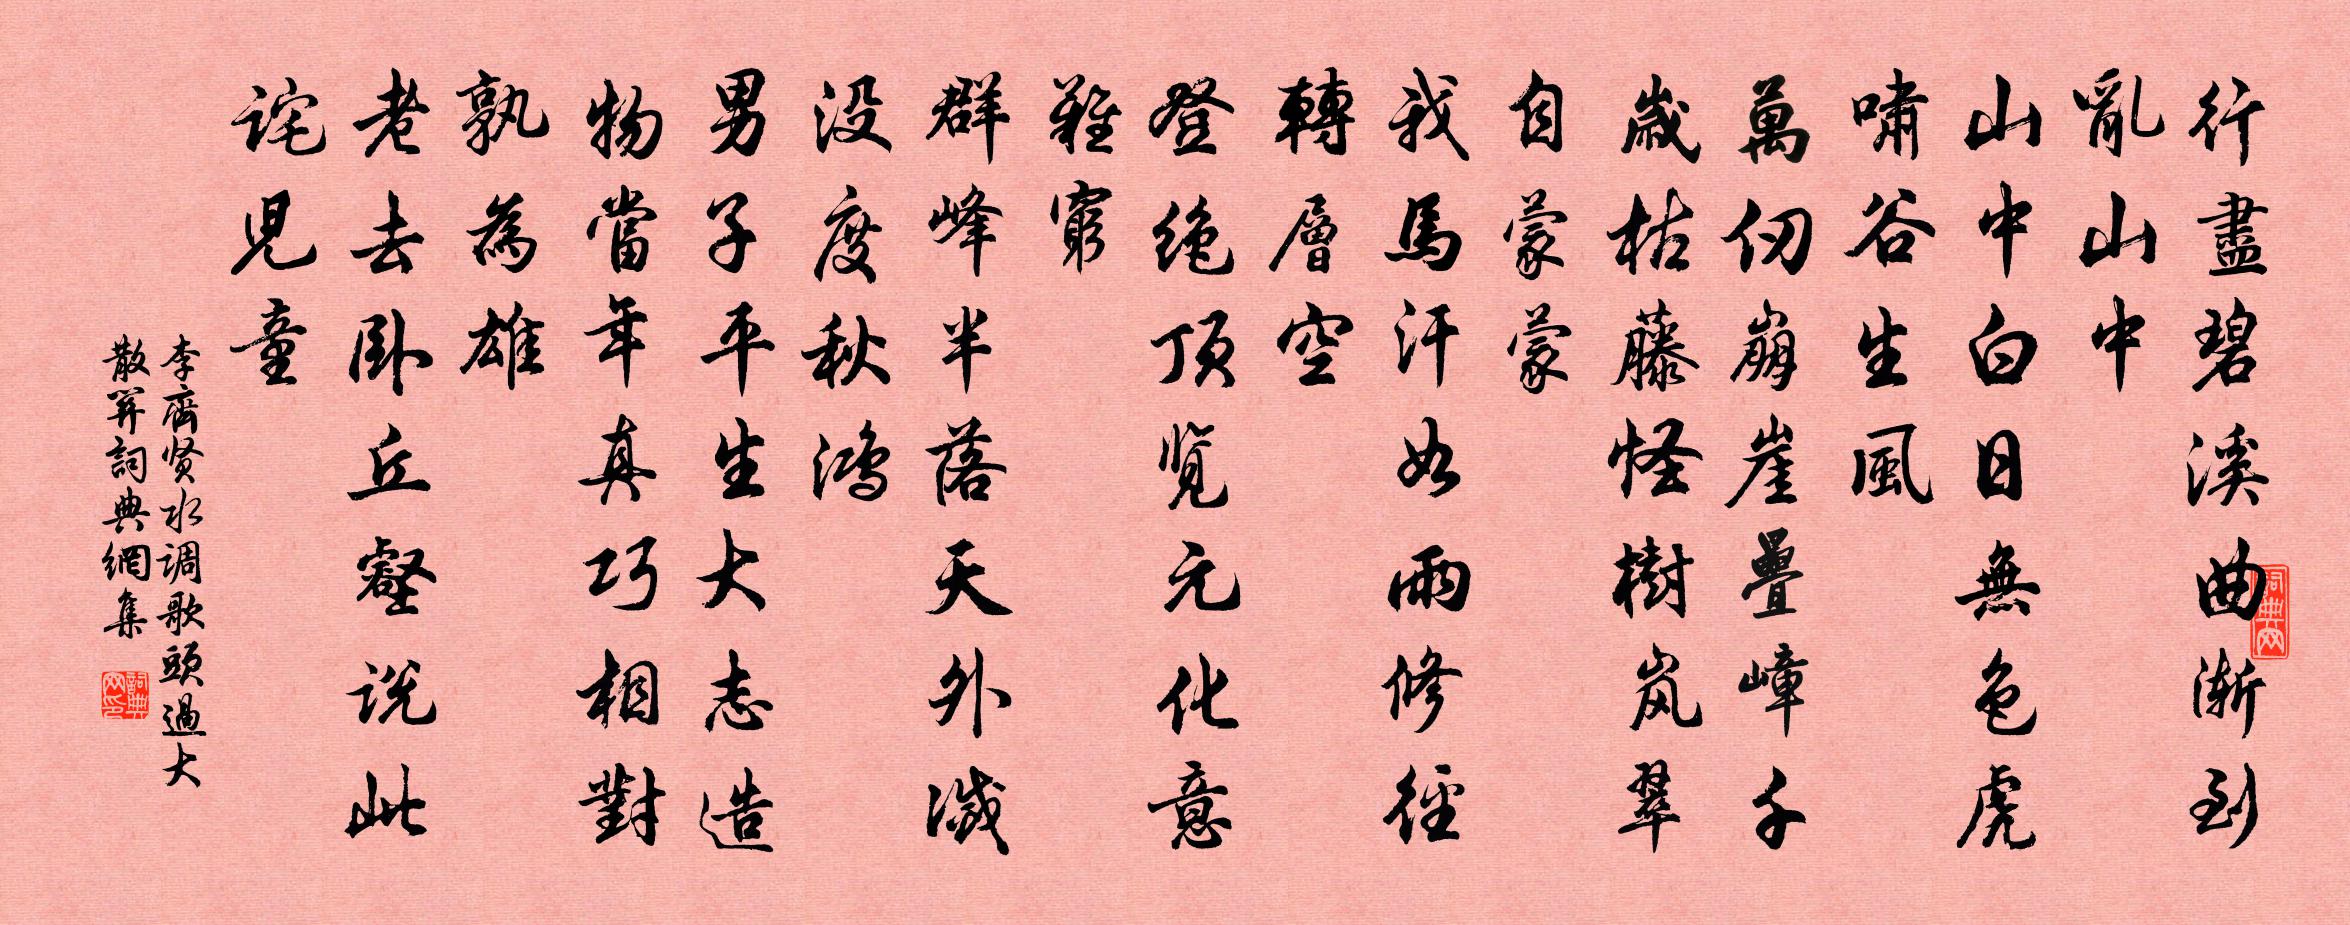 行盡碧溪曲渐到
亂山中
山中白日無色虎
嘯谷生風
萬仞崩崖疊嶂千
歲枯藤怪樹岚翠
自蒙蒙
我馬汗如雨修徑
轉層空
登绝顶览元化意
難窮
群峰半落天外滅
没度秋鴻
男子平生大志造
物當年真巧相對
孰為雄
老去卧丘壑说此
詫児童
李齊贤水调歌頭過大
散関詞典網集
詞典网
詞典网印